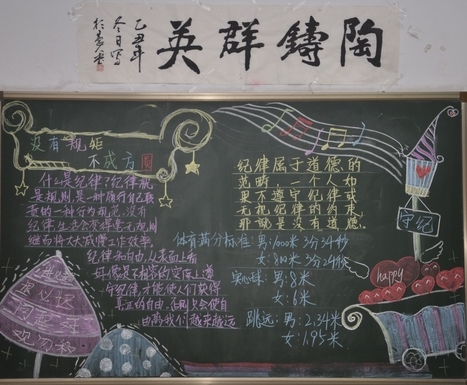 陶鑄群英
乙丑年
冬日写
没有规矩
不成方圆
什么是纪律?纪律就
是规则,是一种履行自己职
责的一种行为规范,没有
纪律生活会变得毫无规则
继而将大大减慢工作效率。
纪律和自由,从表面上看
好像是不相容的,实际上遵
守纪律,才能使人们获得
真正的自由,否则只会使自
由离我们越来越远
纪律属于道德的
范畴,一个人如
果不遵守纪律或
无视纪律的约束
那就是没有道德。
体育满分标准:男:1000米 3分34秒
女:800米 3分24秒
实心球:男:8米
女:6米
跳远:男:2.34米
女:1.95米
守纪
happy